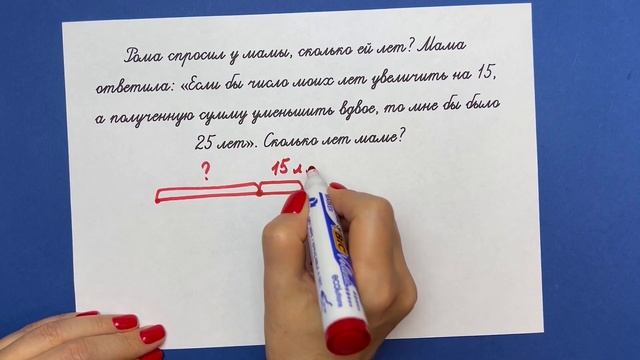 Рома спросил у мамы, сколько ей лет? Мама
ответила: «Если бы число моих лет увеличить на 15,
а полученную сумму уменьшить вдвое, то мне бы было
25 лет». Сколько лет маме?
? 15 л.
BIC